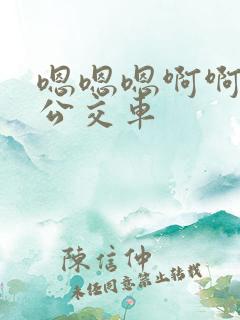 嗯嗯嗯啊啊
公交车
陳信仲
未经同意禁止转载